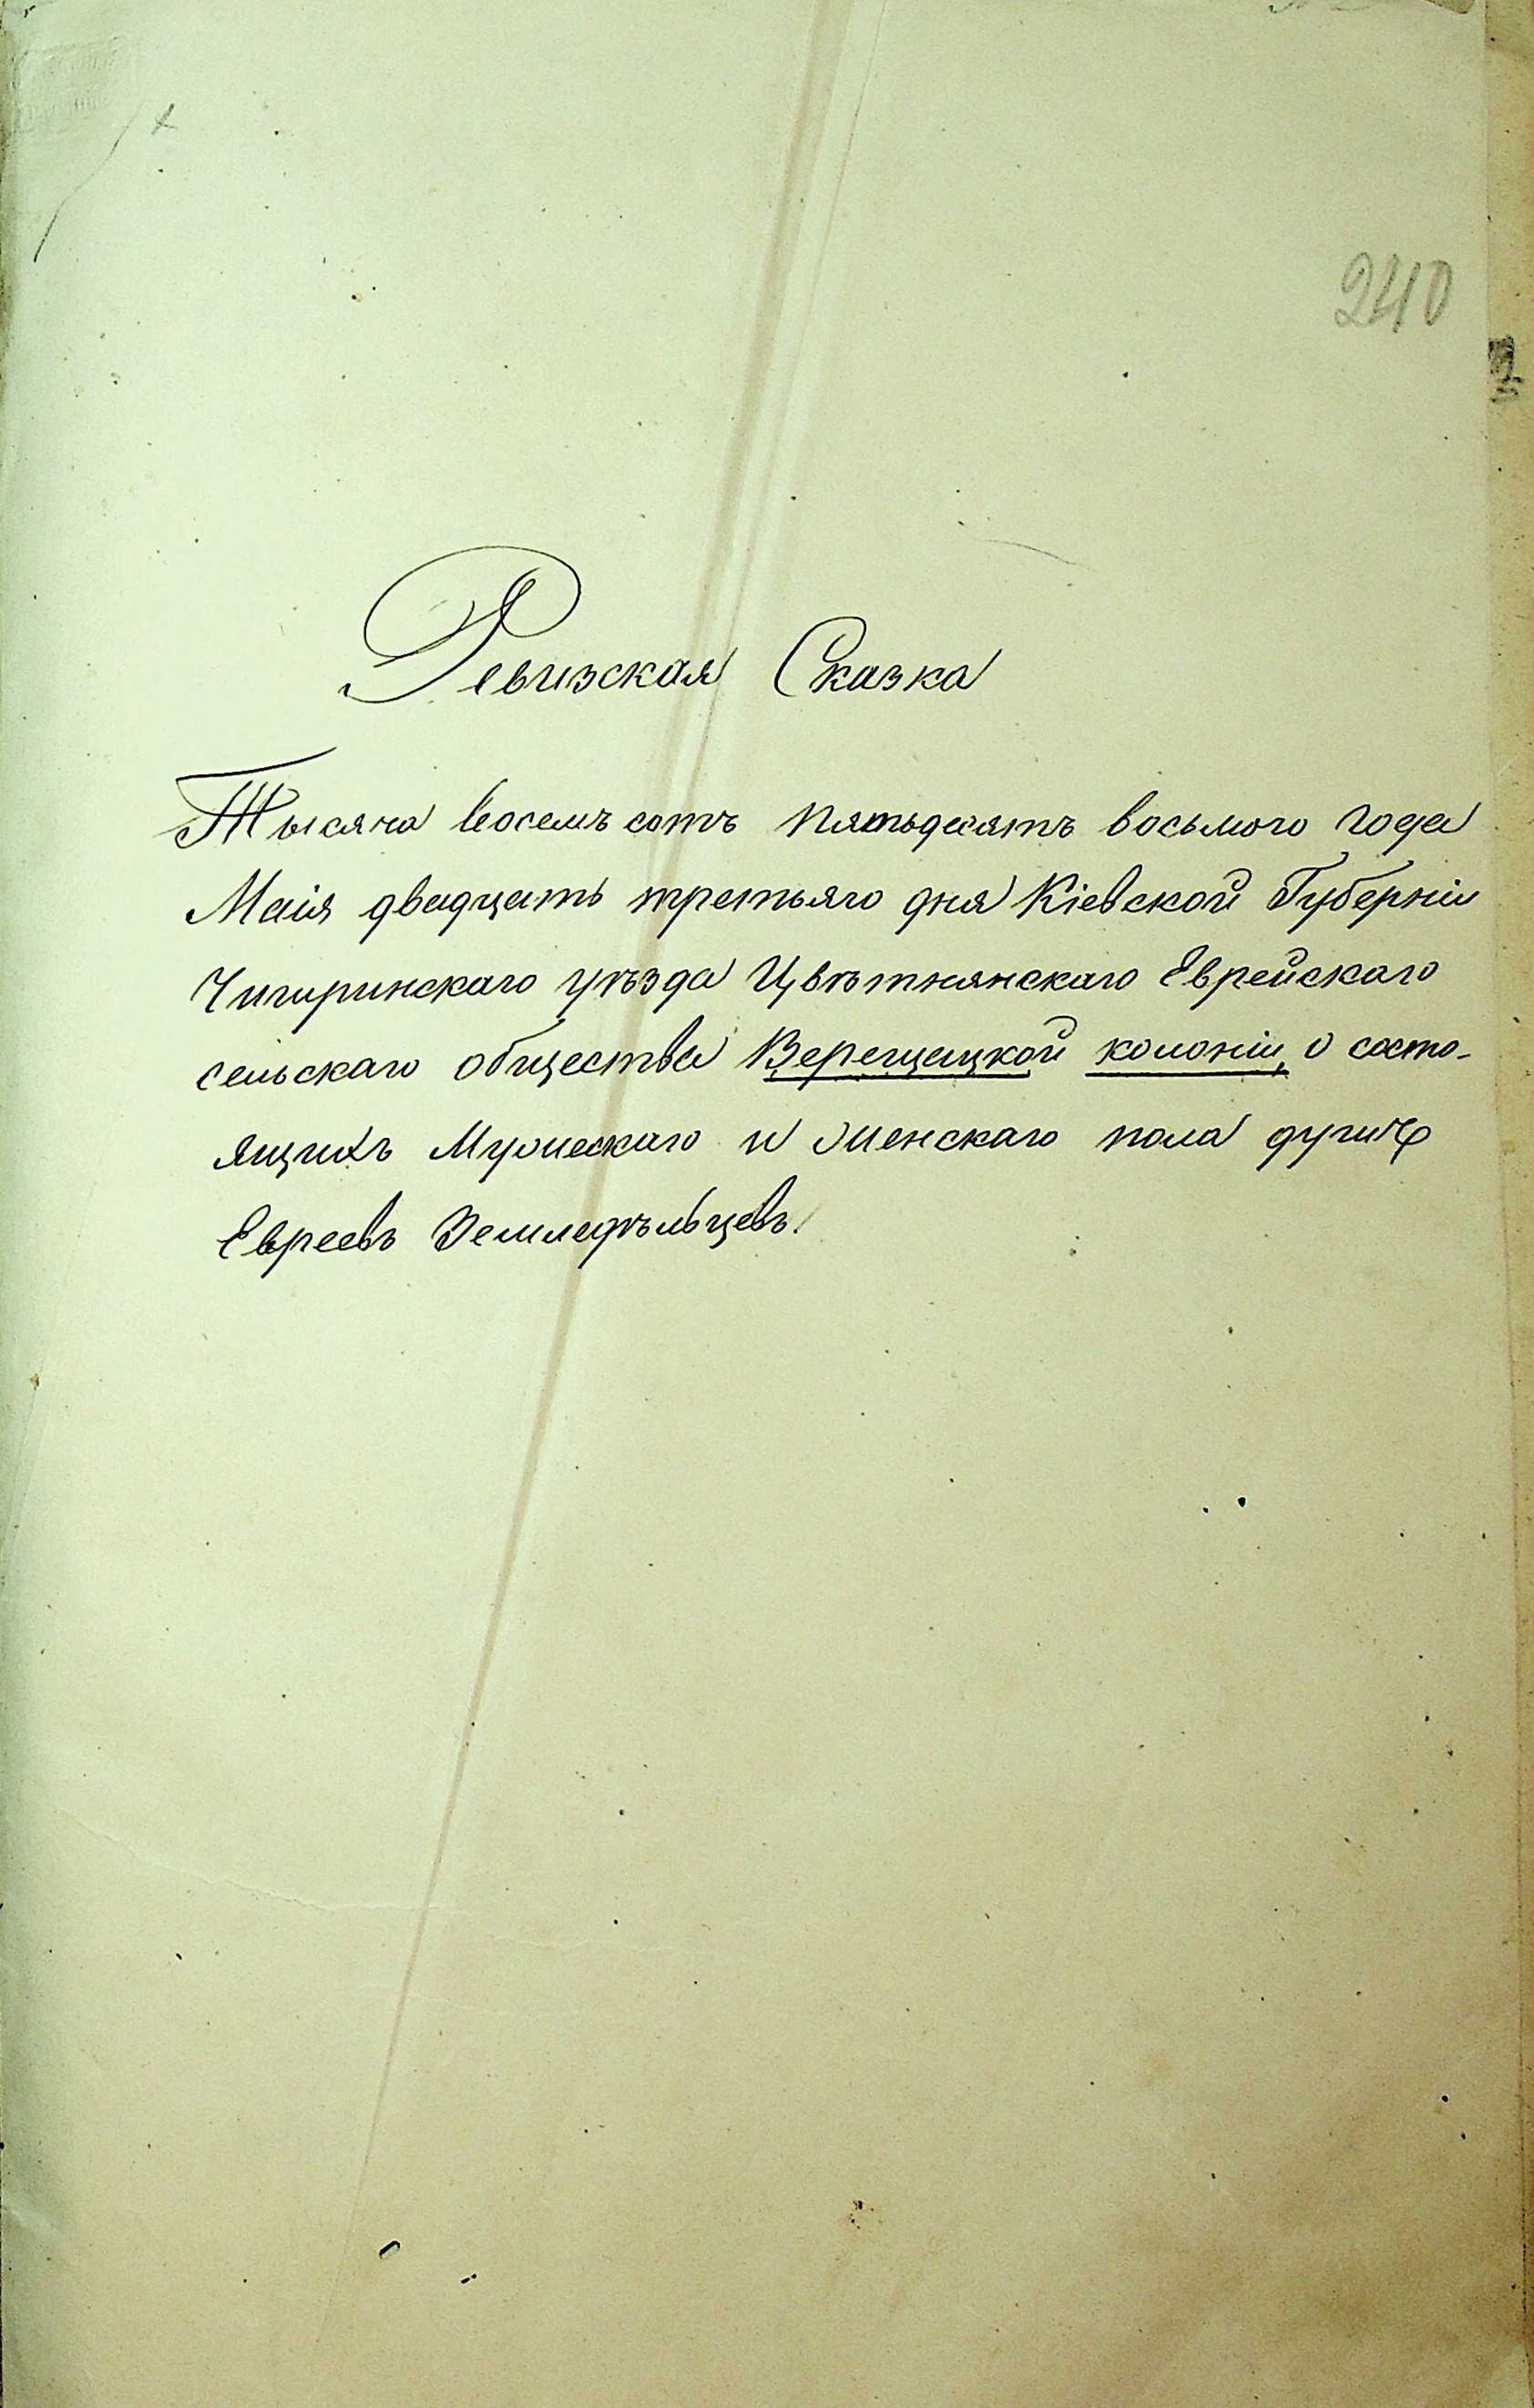 240
Ревизская Сказка
Тысяча восемъ сотъ пятьдесятъ восьмого года
Маія двадцать третьяго дня Кіевской Губерніи
Чигиринскаго уѣзда Цвѣтнянскаго Еврейскаго
сельскаго общества Верещацкой колоніи, о состо-
ящихъ Мужескаго и женскаго пола душъ
Евреевъ Земледѣльцевъ.